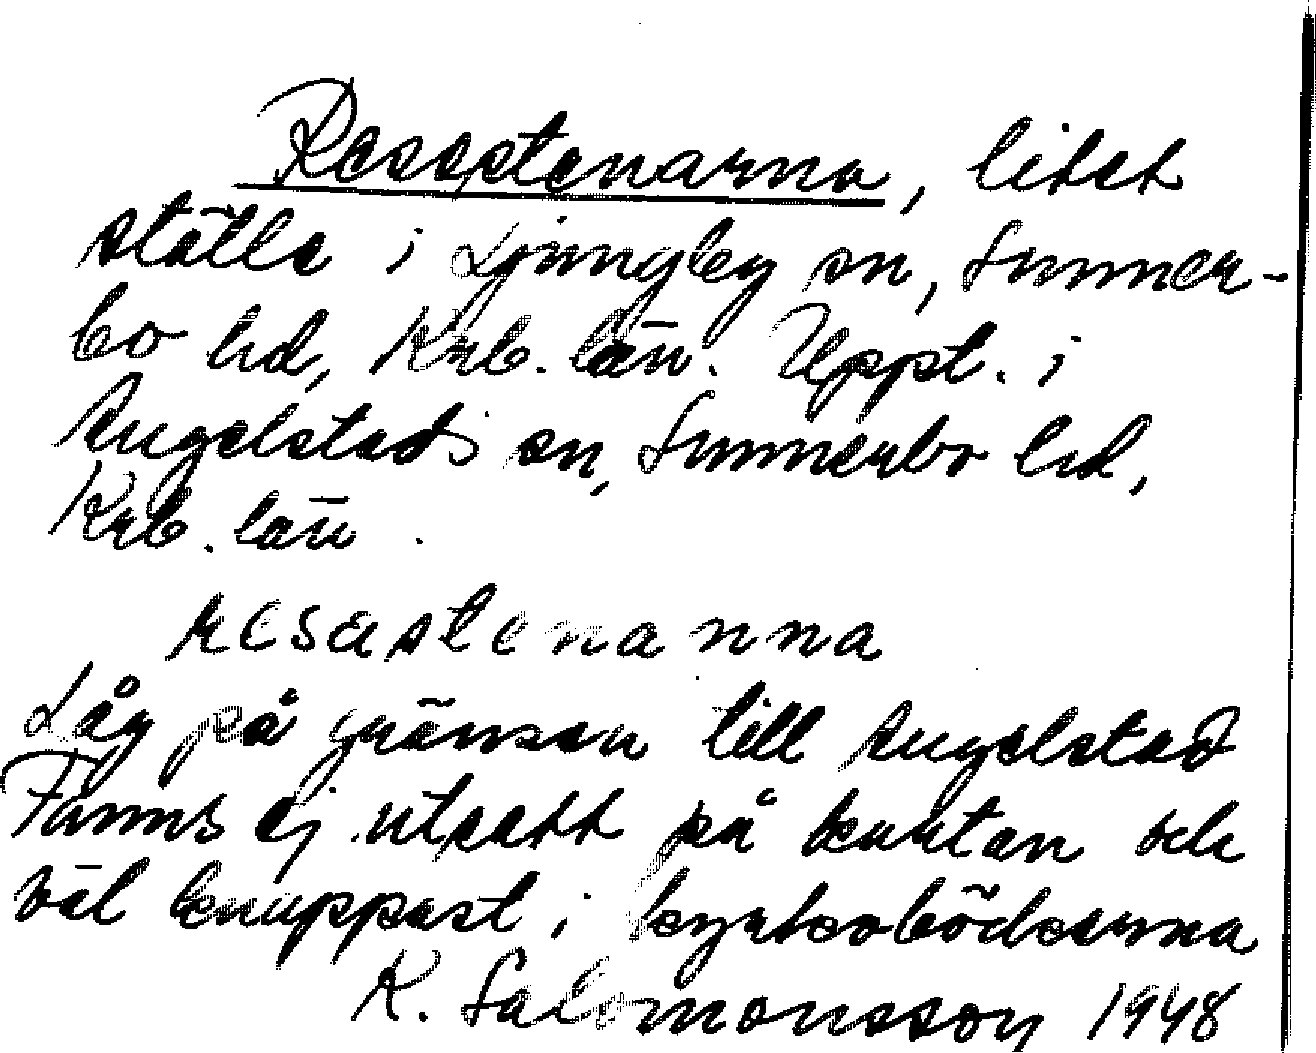 Resestenarna, litet
ställe i Ljungby sn, Sunner-
bo hd, Krb. län. Uppt. i
Angelstads sn, Sunnerbo hd,
Krb. län.
resestenanna
Låg på gränsen till Angelstad
Fanns ej utsatt på kartan och
väl knappast i kyrkoböckerna
K. Salomonsson 1948